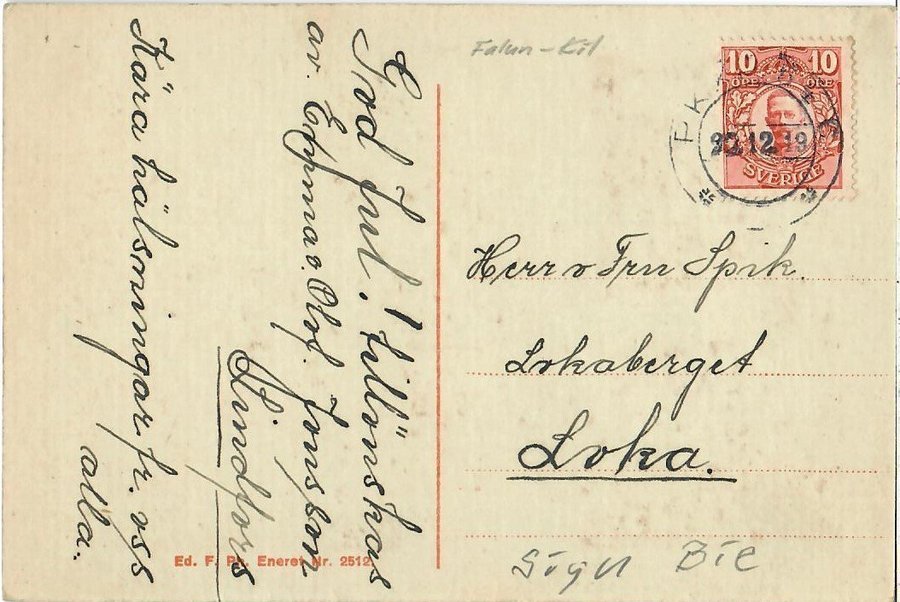 Falun - Kil
10 10
ÖRE ÖRE
SVERIGE
PK
12 19
God Jul. tillönskas
av. Emma o. Olof. Jonsson
Lindfors
Kära hälsningar fr. oss
alla.
Herr o Fru Spik.
Lokaberget
Loka.
Ed. F. Eneret Nr. 2512.
Sign Bic